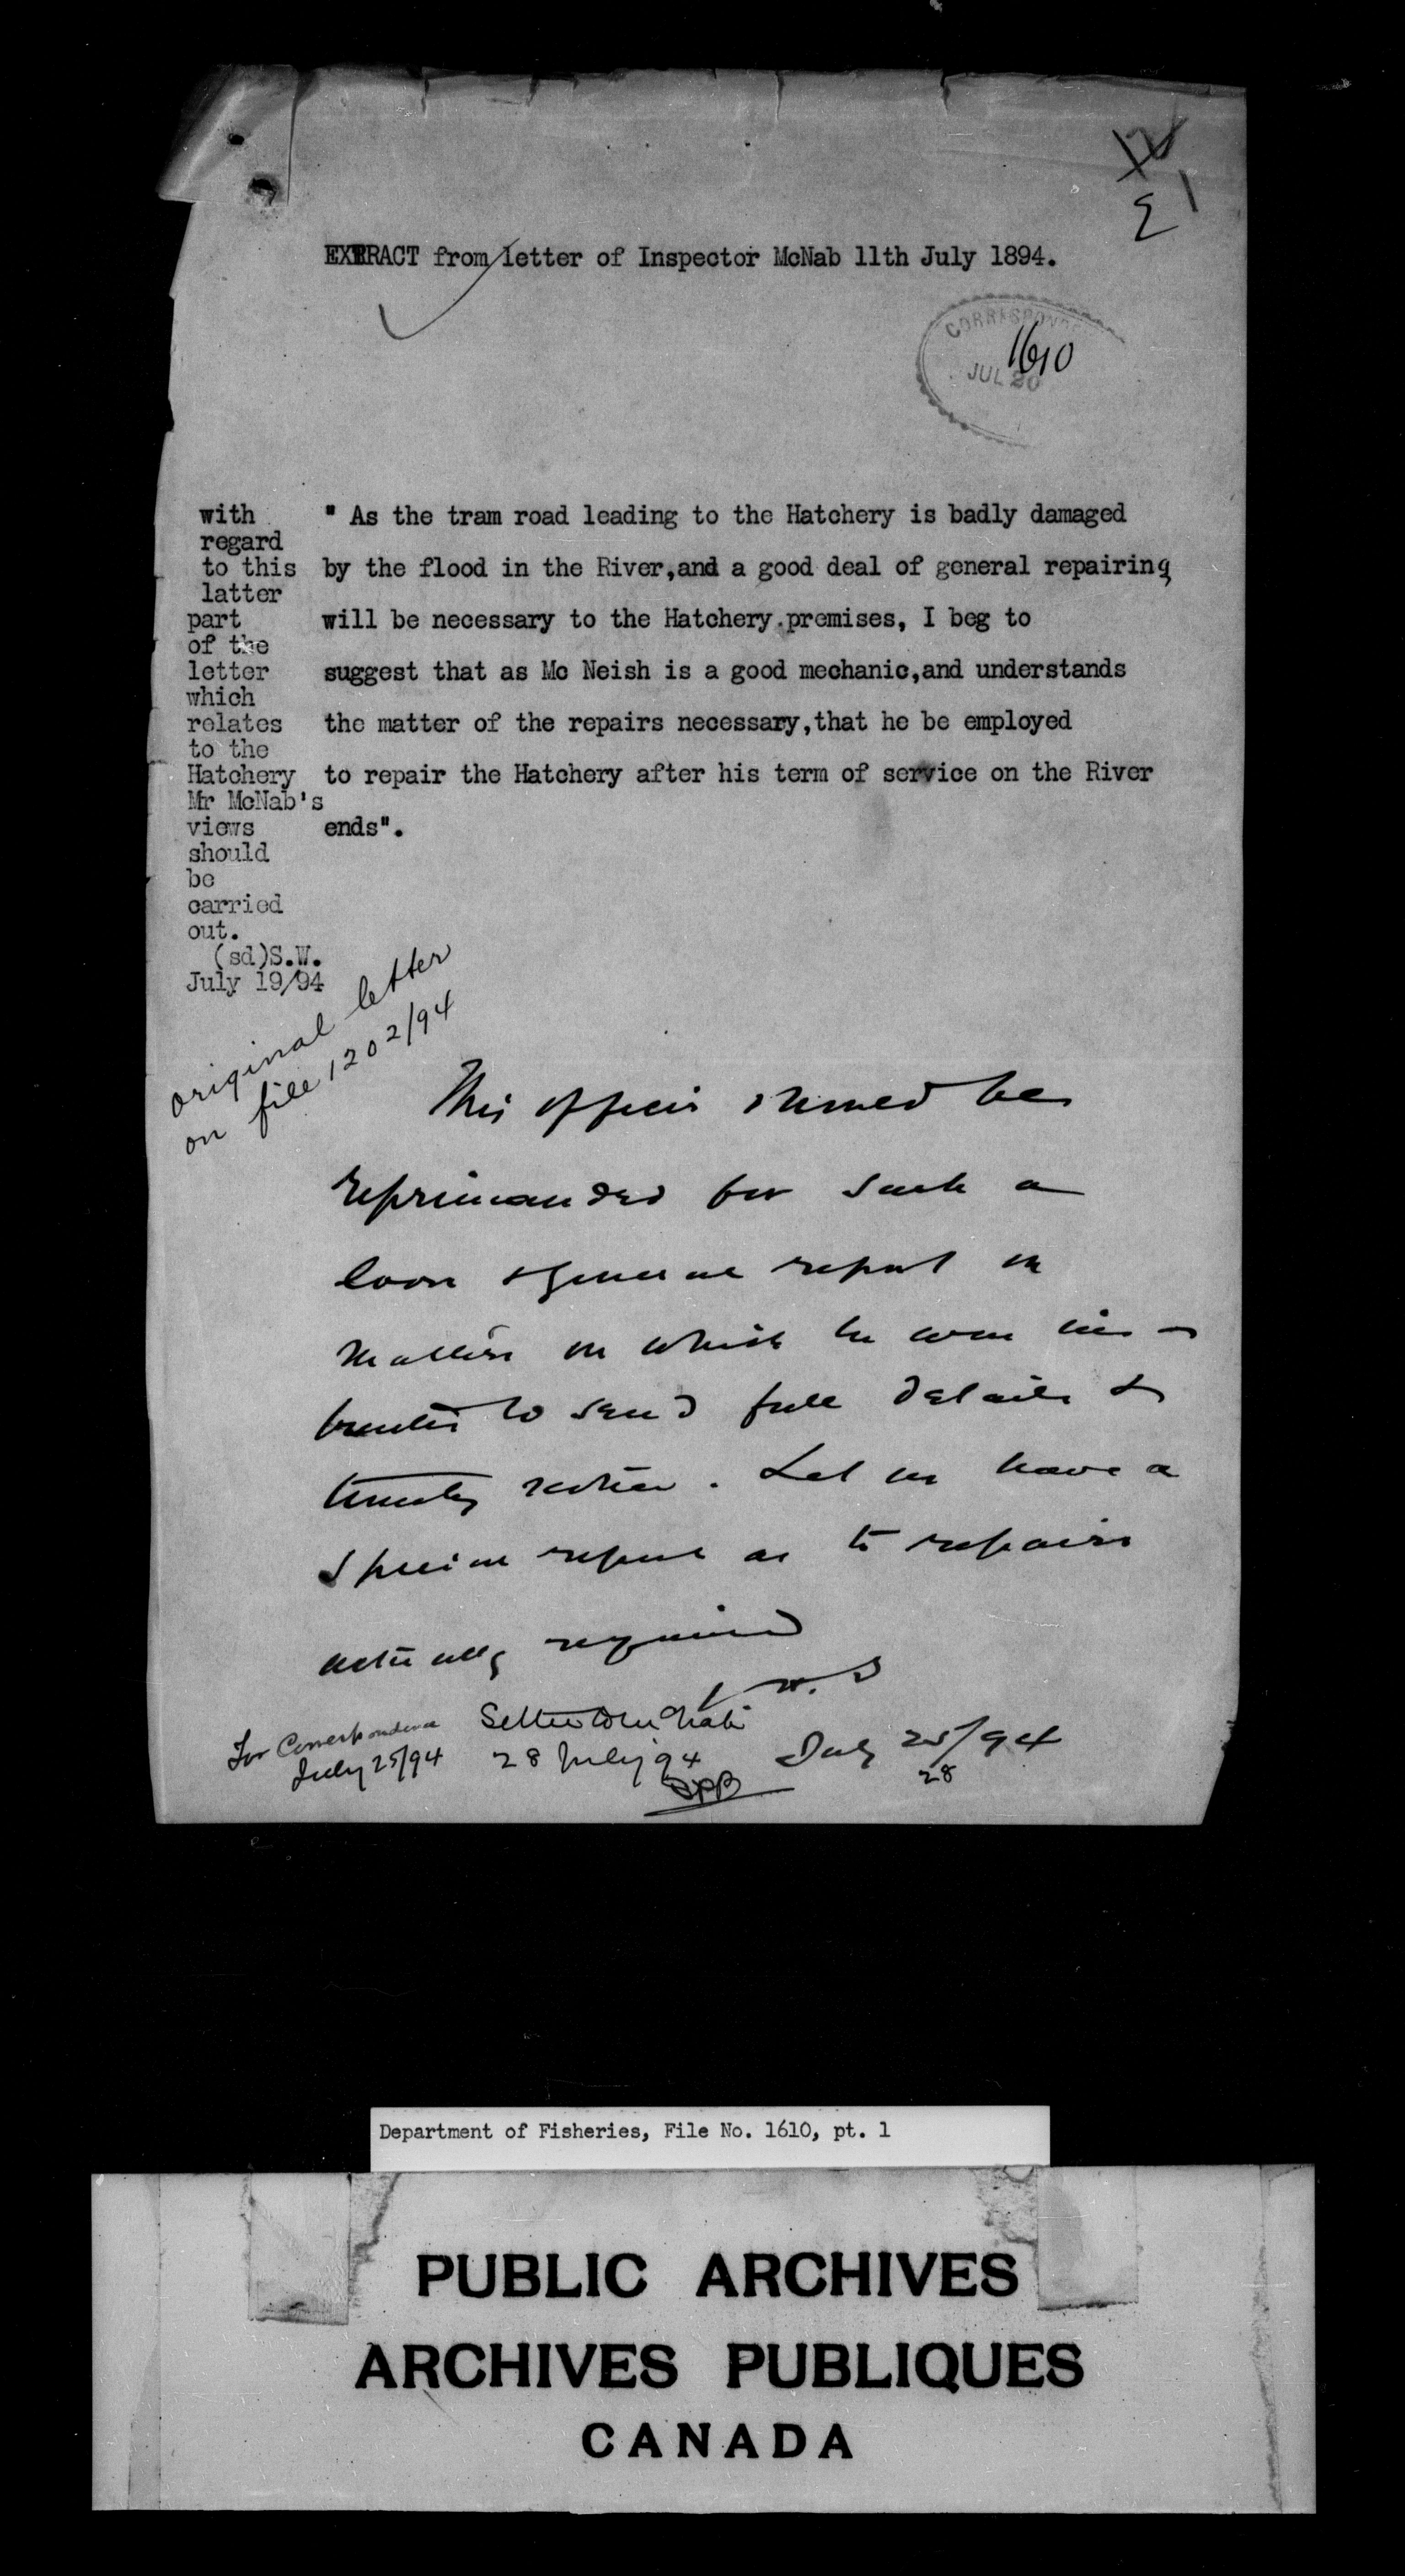 EXTRACT from letter of Inspector McNab 11th July 1894.
CORRESPONDE
1610
JUL 20
with
regard
to this
latter
part
of the
letter
which
relates
to the
Hatchery
Mr McNab's
views
should
be
carried
out.
(sd)S.W.
July 19/94
" As the tram road leading to the Hatchery is badly damaged
by the flood in the River,and a good deal of general repairing
will be necessary to the Hatchery premises, I beg to
suggest that as Mc Neish is a good mechanic,and understands
the matter of the repairs necessary,that he be employed
to repair the Hatchery after his term of service on the River
ends".
original letter
on file 1202/94
This officer should be
reprimanded for such a
loose & general report on
matters on which he was ins-
tructed to send full details &
timely notice. Let us have a
special report as to repairs
actually required
For Correspondence
July 25/94
28 July 94
July 25/94
28
Department of Fisheries, File No. 1610, pt. 1
PUBLIC ARCHIVES
ARCHIVES PUBLIQUES
CANADA